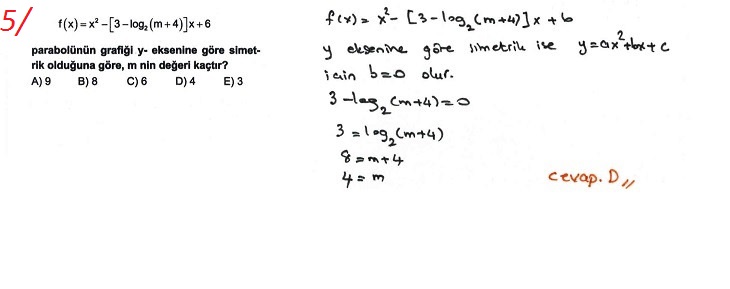 5/
f(x) = x² – [3 – log₂(m + 4)]x + 6
parabolünün grafiği y- eksenine göre simet-
rik olduğuna göre, m nin değeri kaçtır?
A) 9 B) 8 C) 6 D) 4 E) 3
f(x) = x² - [3 - log₂(m+4)]x + 6
y eksenine göre simetrik ise y = ax² + bx + c
için b = 0 olur.
3 - log₂(m+4) = 0
3 = log₂(m+4)
8 = m + 4
4 = m
cevap. D //